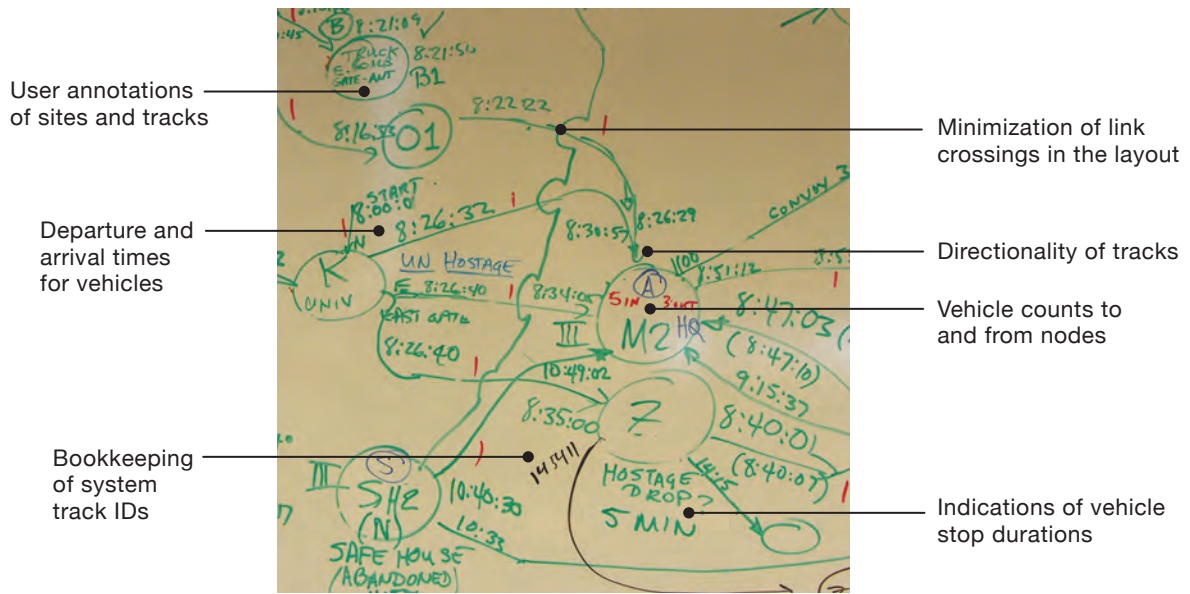 User annotations
of sites and tracks
Departure and
arrival times
for vehicles
Bookkeeping
of system
track IDs
Minimization of link
crossings in the layout
Directionality of tracks
Vehicle counts to
and from nodes
Indications of vehicle
stop durations
B
8:21:09
TRUCK
8:21:50
B1
8:22:22
01
START
8:26:32
K
UNIV
UN HOSTAGE
E 8:26:40
EAST GATE
8:26:40
8:30:57
8:26:29
CONVOY 3
1100
8:51:12
A
5 IN
M2
HQ
III
8:47:03
(8:47:10)
9:15:37
10:49:02
Z
8:35:00
8:40:01
(8:40:07)
14:15
145411
HOSTAGE
DROP?
5 MIN
S
III
SH2
(N)
10:40:30
10:33
SAFE HOUSE
(ABANDONED)